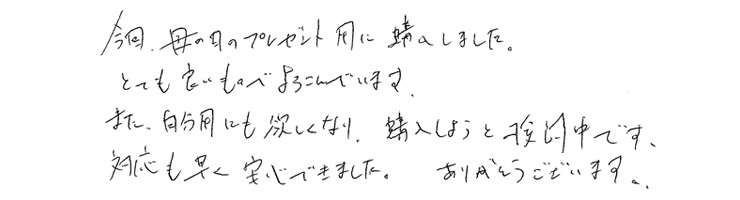 今回、母の日のプレゼント用に購入しました。
とても良いもので よろこんでいます。
また、自分用にも欲しくなり、購入しようと検討中です、
対応も早く安心できました。 ありがとうございます。